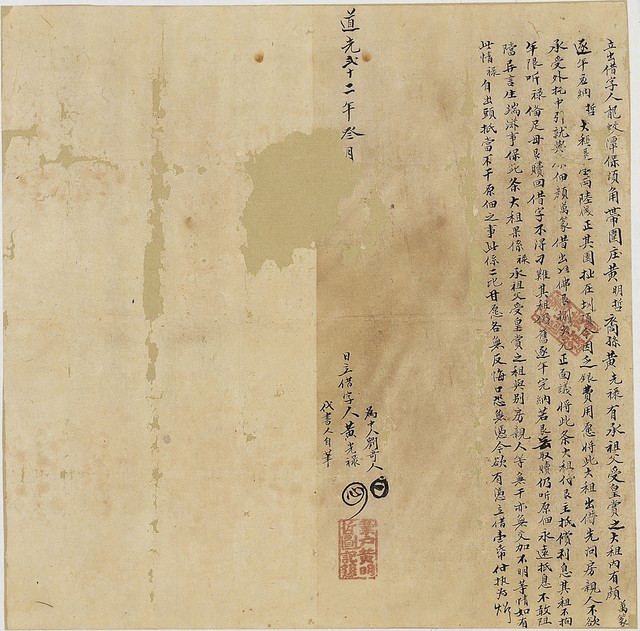 立出借字人龍蛟潭保頂角帶圍庄黃明哲裔孫黃光祿有承祖父受皇賞之大租內有顏
萬篆
逐年應納哲大租艮壹両陸戔正其園址在圳因乏銀費用愿將此大租出借先問房親人不欲
承受外托中引就與佃顏萬篆借出佛艮正面議將此条大租付艮主抵償利息其租不拘
年限听祿備足母艮贖回借字不得刁難其租仍舊逐年完納若艮取贖仍听原佃永遠抵息不敢阻
擋异言生端滋事保此条大租果係祿承祖父受皇賞之租與別房親人等無干亦無交加不明等情如有
此情祿自出頭抵當不干原佃之事此係二比甘愿各無反悔口恐無憑今欲有憑立借壹帋付执為炤
為中人劉
日立借字人黃光祿
代書人自筆
道光弍十二年叁月
業戶黃明